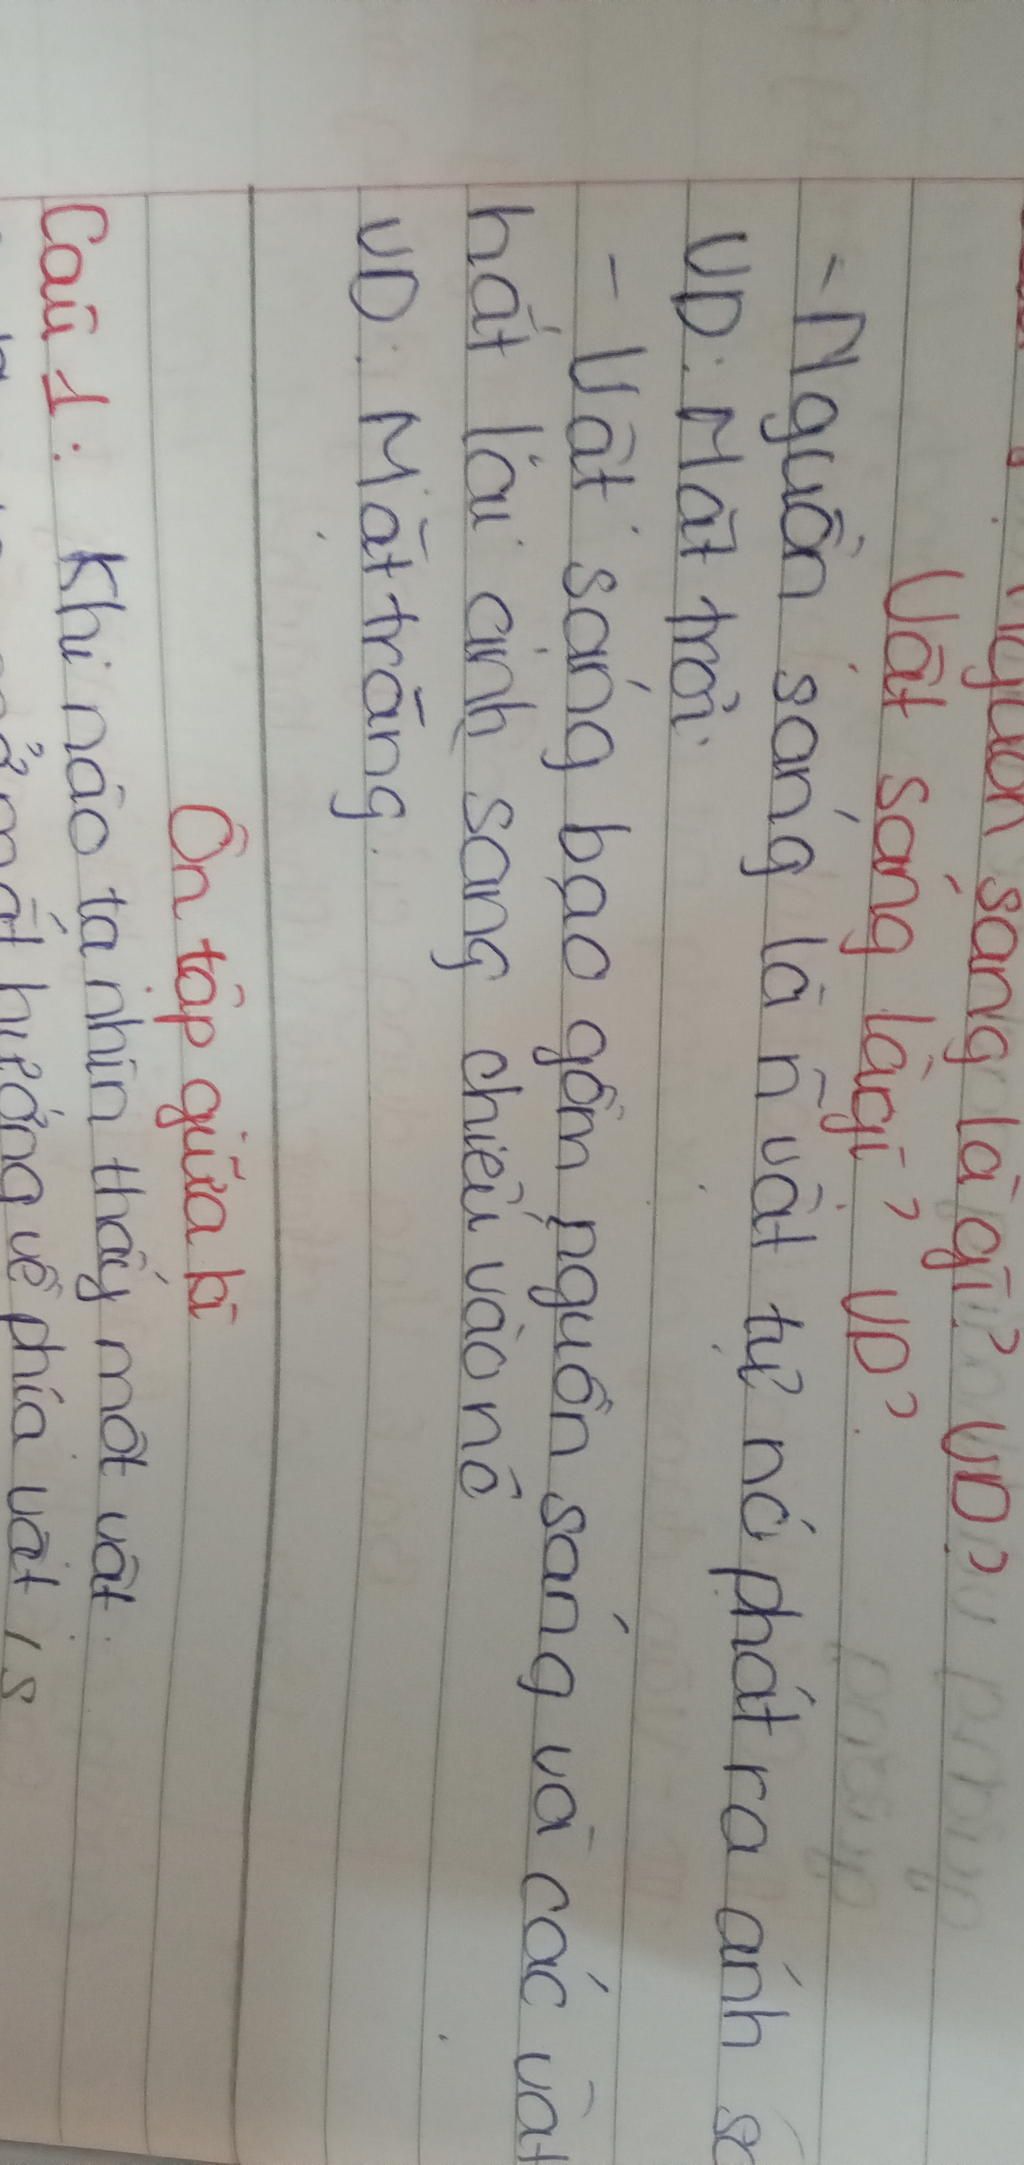 Nguồn sáng là gì? VD?
Vật sáng là gì? VD?
- Nguồn sáng là n~ vật tự nó phát ra ánh
VD: Mặt trời.
- Vật sáng bao gồm nguồn sáng và các vật
hắt lại ánh sáng chiếu vào nó
VD: Mặt trăng.
Ôn tập giữa kì
Câu 1: Khi nào ta nhìn thấy một vật
mở mắt hướng về phía vật